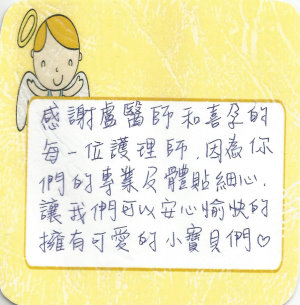 感謝盧醫師和喜孕的
每一位護理師,因為你
們的專業及體貼細心,
讓我們可以安心愉快的
擁有可愛的小寶貝們♡